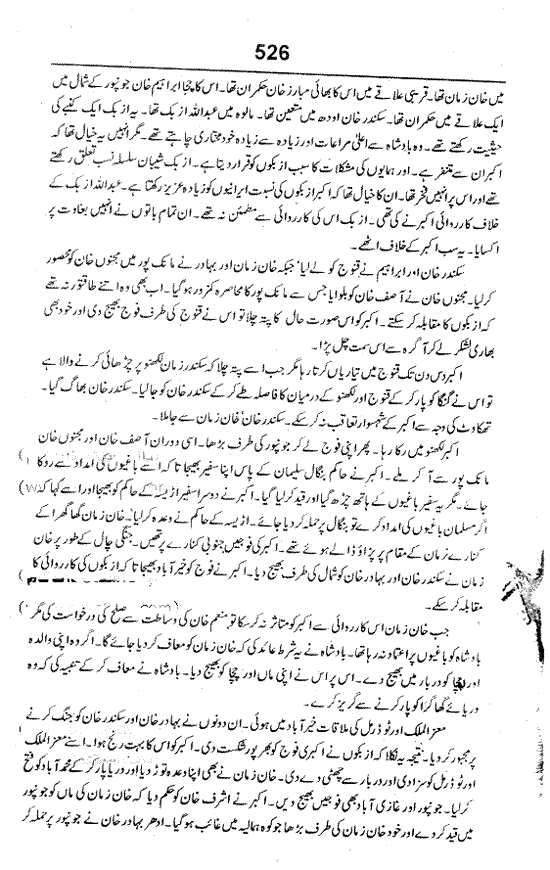 526
میں خان زمان تھا۔ قریبی علاقے میں اس کا بھائی مبارز خان حکمران تھا۔ اس کا چچا ابراہیم خان جونپور کے شمال میں
ایک علاقے میں حکمران تھا۔ سکندر خان اودھ میں متعین تھا۔ مالوہ میں عبداللہ ازبک تھا۔ یہ ازبک ایک کنبے کی
حیثیت رکھتے تھے۔ وہ بادشاہ سے اعلیٰ مراعات اور زیادہ سے زیادہ خودمختاری چاہتے تھے۔ مگر انہیں یہ خیال تھا کہ
اکبر ان سے متنفر ہے۔ اور ہمایوں کی مشکلات کا سبب ازبکوں کو قرار دیتا ہے۔ ازبک شیبان سلسلہ نسب تعلق رکھتے
تھے اور اس پر انہیں فخر تھا۔ ان کا خیال تھا کہ اکبر ازبکوں کی نسبت ایرانیوں کو زیادہ عزیز رکھتا ہے۔ عبداللہ ازبک کے
خلاف کارروائی اکبر نے کی تھی۔ ازبک اس کی کارروائی سے مطمئن نہ تھے۔ ان تمام باتوں نے انہیں بغاوت پر
اکسایا۔ یہ سب اکبر کے خلاف اٹھے۔
سکندر خان اور ابراہیم نے قنوج کو لے لیا جبکہ خان زمان اور بہادر نے مانک پور میں مجنوں خان کو محصور
کر لیا۔ مجنوں خان نے آصف خان کو بلوایا جس سے مانک پور کا محاصرہ کمزور ہو گیا۔ اب بھی وہ اتنے طاقتور نہ تھے
کہ ازبکوں کا مقابلہ کر سکتے۔ اکبر کو اس صورت حال کا پتہ چلا تو اس نے قنوج کی طرف فوج بھیج دی اور خود بھی
بھاری لشکر لے کر آگرہ سے اس سمت چل پڑا۔
اکبر دس دن تک قنوج میں تیاریاں کرتا رہا مگر جب اسے پتہ چلا کہ سکندر زمان لکھنو پر چڑھائی کرنے والا ہے
تو اس نے گنگا کو پار کر کے قنوج اور لکھنو کے درمیان کا فاصلہ طے کر کے سکندر خان کو جا لیا۔ سکندر خان بھاگ گیا۔
تھکاوٹ کی وجہ سے اکبر کے شہسوار تعاقب نہ کر سکے۔ سکندر خان، خان زمان سے جا ملا۔
اکبر لکھنو میں رکا رہا۔ پھر اپنی فوج لے کر جونپور کی طرف بڑھا۔ اسی دوران آصف خان اور مجنوں خان
مانک پور سے آ کر ملے۔ اکبر نے حاکم بنگال سلیمان کے پاس اپنا سفیر بھیجا تا کہ اسے باغیوں کی امداد سے روکا
جائے۔ مگر یہ سفیر باغیوں کے ہاتھ چڑھ گیا اور قید کر لیا گیا۔ اکبر نے دوسرا سفیر اڑیسہ کے حاکم کو بھیجا اور اسے کہا کہ
اگر مسلمان باغیوں کی امداد کرے تو بنگال پر حملہ کر دیا جائے۔ اڑیسہ کے حاکم نے وعدہ کر لیا۔ خان زمان گھاگھرا کے
کنارے زمان کے مقام پر پڑاؤ ڈالے ہوئے تھے۔ اکبر کی فوجیں جنوبی کنارے پر تھیں۔ جنگی چال کے طور پر خان
زمان نے سکندر خان اور بہادر خان کو شمال کی طرف بھیج دیا۔ اکبر نے فوج کو خیر آباد بھیجا تا کہ ازبکوں کی کارروائی کا
مقابلہ کر سکے۔
جب خان زمان اس کارروائی سے اکبر کو متاثر نہ کر سکا تو منعم خان کی وساطت سے صلح کی درخواست کی مگر
بادشاہ کو باغیوں پر اعتماد نہ رہا تھا۔ بادشاہ نے یہ شرط عائد کی کہ خان زمان کو معاف کر دیا جائے گا۔ اگر وہ اپنی والدہ
اور چچا کو دربار میں بھیج دے۔ اس پر اس نے اپنی ماں اور چچا کو بھیج دیا۔ بادشاہ نے معاف کر کے تنبیہ کی کہ وہ
دریائے گھاگرا کو پار کرنے سے گریز کرے۔
معز الملک اور ٹوڈرمل کی ملاقات خیر آباد میں ہوئی۔ ان دونوں نے بہادر خان اور سکندر خان کو جنگ کرنے
پر مجبور کر دیا۔ نتیجہ یہ نکلا کہ ازبکوں نے اکبری فوج کو بھرپور شکست دی۔ اکبر کو اس کا بہت رنج ہوا۔ اسنے معز الملک
اور ٹوڈرمل کو سزا دی اور دربار سے چھٹی دے دی۔ خان زمان نے بھی اپنا وعدہ توڑ دیا اور دریا پار کر کے محمد آباد کو فتح
کر لیا۔ جونپور اور غازی آباد بھی فوجیں بھیج دیں۔ اکبر نے اشرف خان کو حکم دیا کہ خان زمان کی ماں کو جونپور
میں قید کر دے اور خود خان زمان کی طرف بڑھا جو کوہ ہمالیہ میں غائب ہو گیا۔ ادھر بہادر خان نے جونپور پر حملہ کر